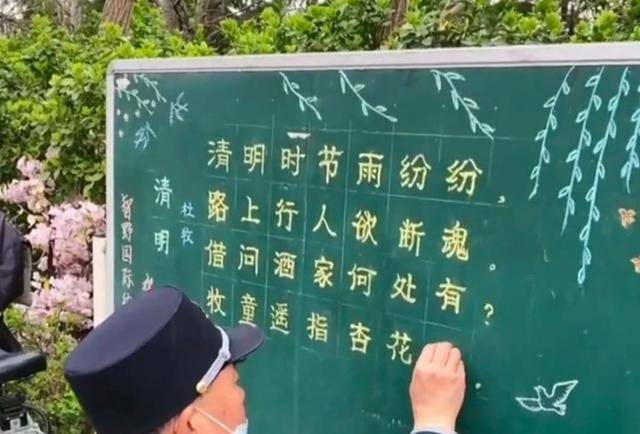 清明
杜牧
清明时节雨纷纷，
路上行人欲断魂。
借问酒家何处有？
牧童遥指杏花
野国际